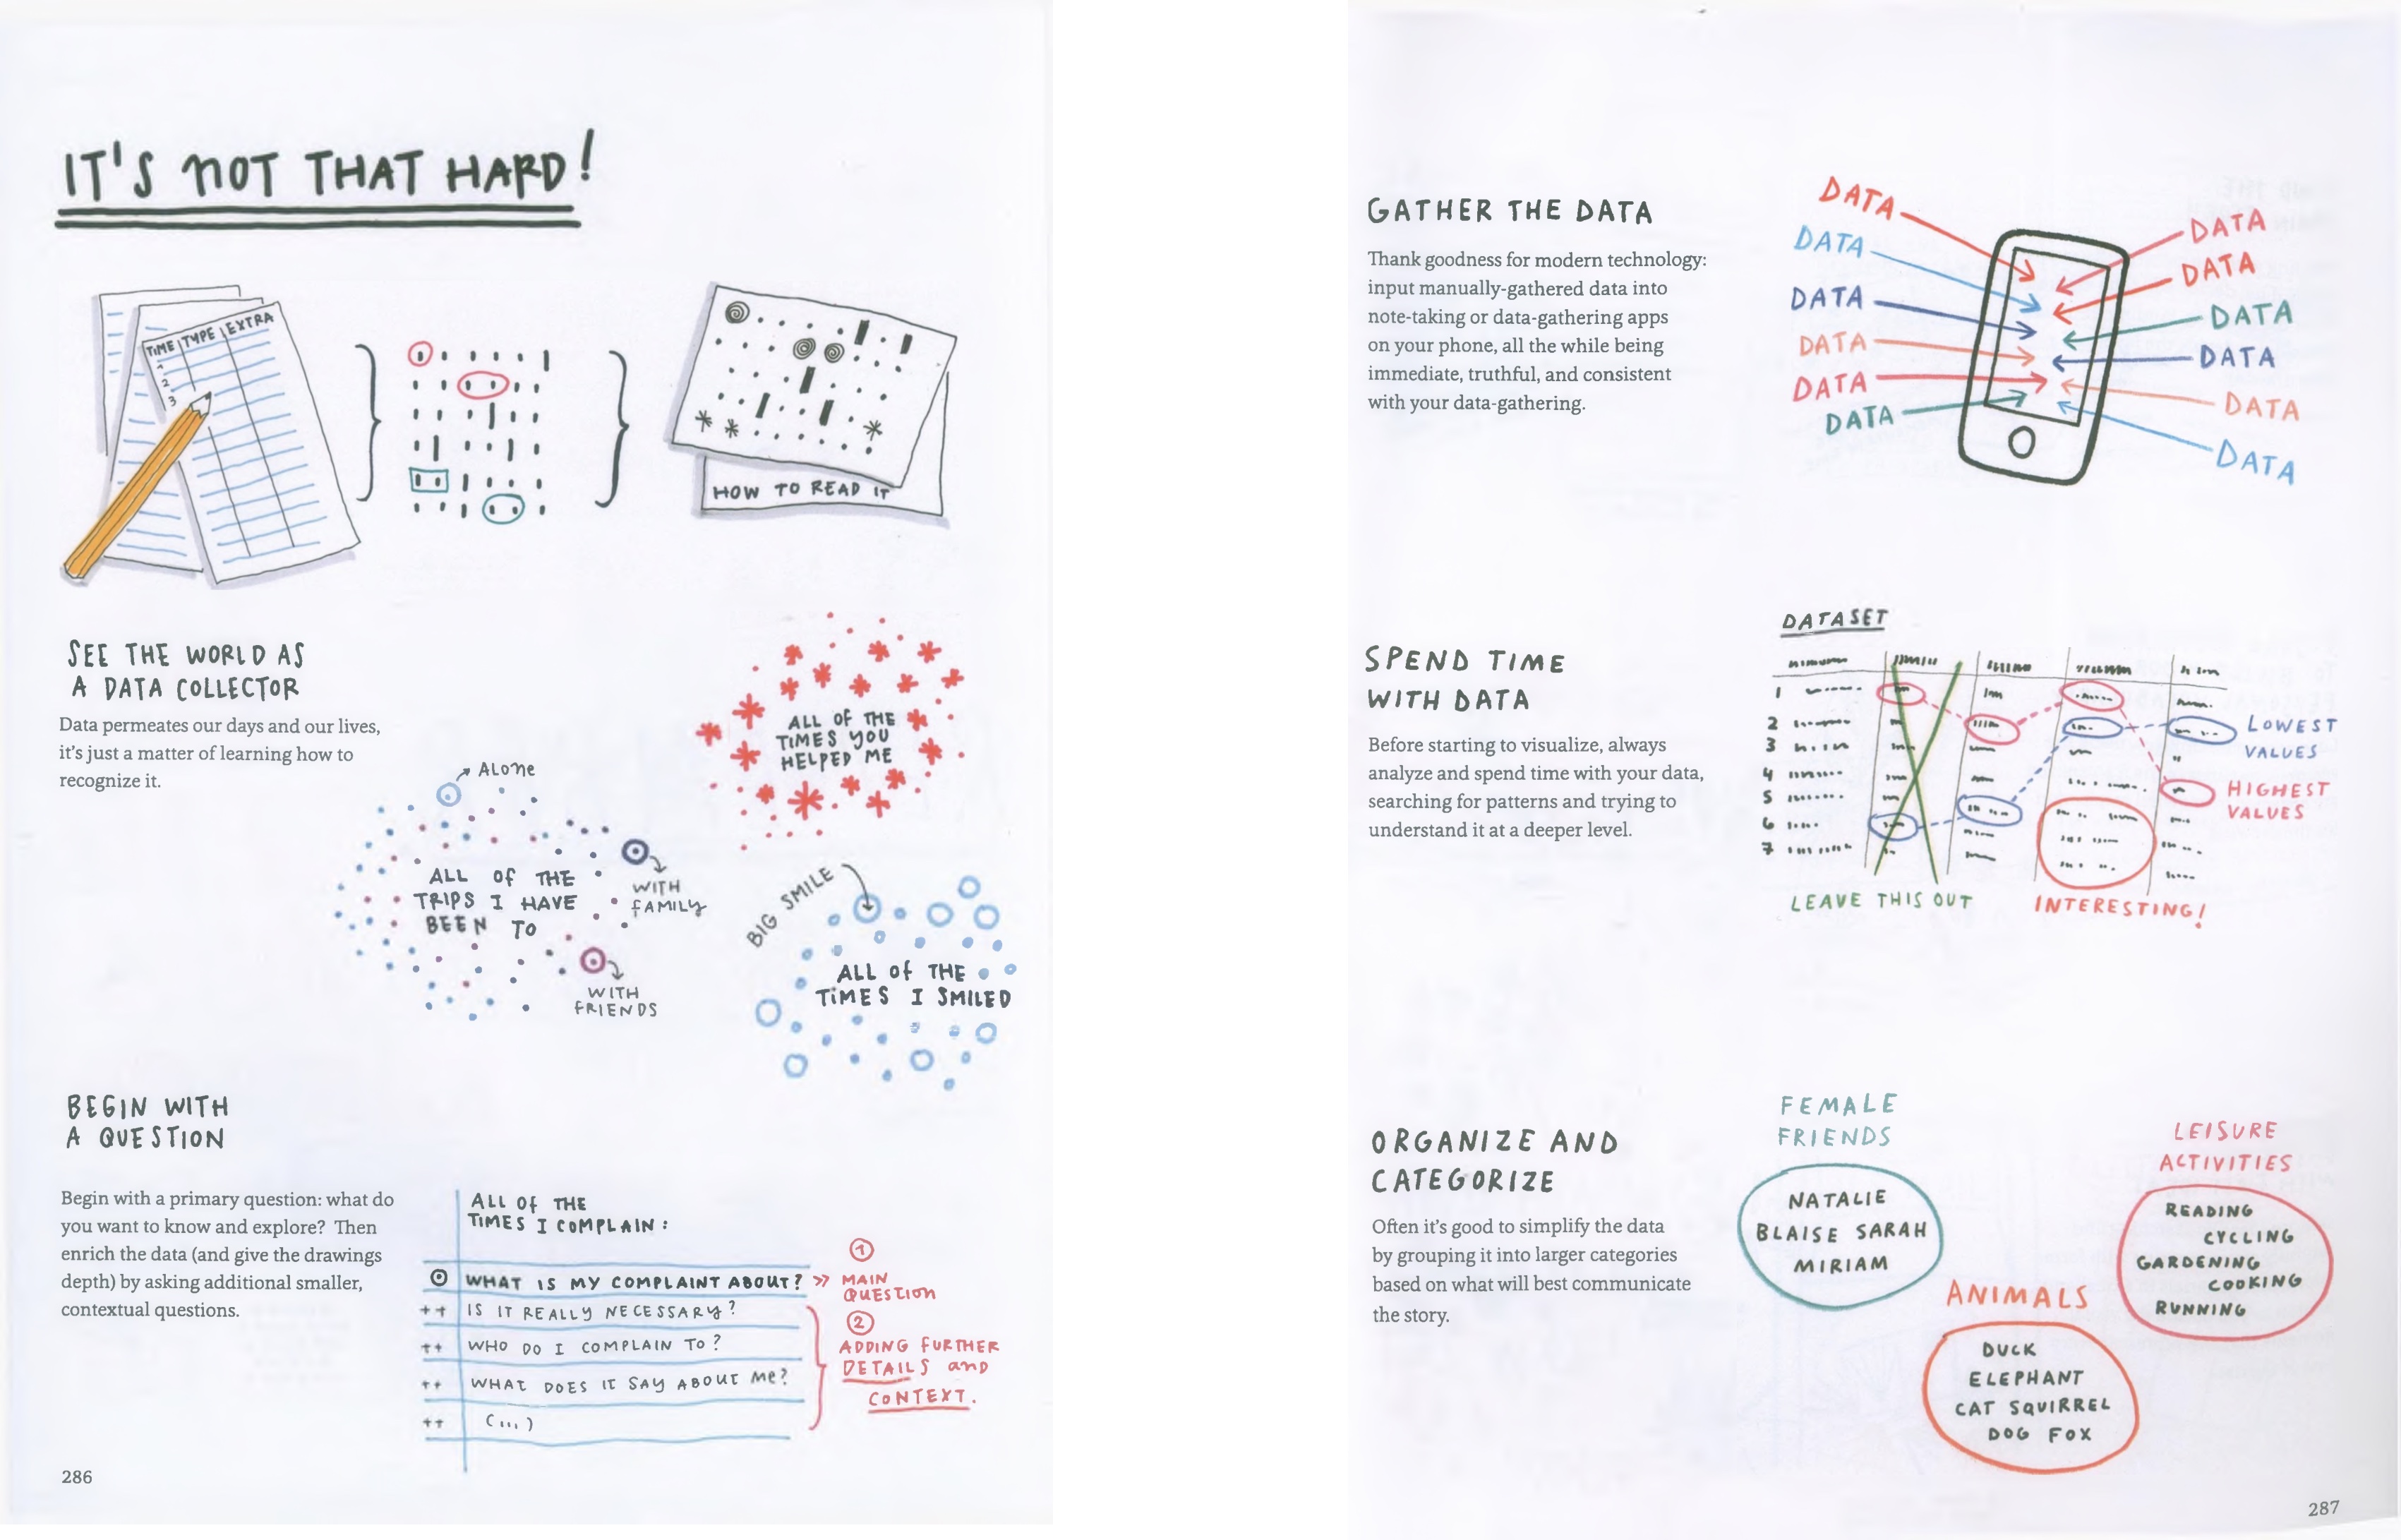 IT'S NOT THAT HARD!
TIME TYPE EXTRA
1
2
3
HOW TO READ IT
SEE THE WORLD AS
A DATA COLLECTOR
Data permeates our days and our lives,
it's just a matter of learning how to
recognize it.
ALL OF THE
TIMES YOU
HELPED ME
ALONE
ALL OF THE
TRIPS I HAVE
BEEN TO
WITH
FAMILY
WITH
FRIENDS
BIG SMILE
ALL OF THE
TIMES I SMILED
BEGIN WITH
A QUESTION
Begin with a primary question: what do
you want to know and explore? Then
enrich the data (and give the drawings
depth) by asking additional smaller,
contextual questions.
ALL OF THE
TIMES I COMPLAIN:
WHAT IS MY COMPLAINT ABOUT? »
++ IS IT REALLY NECESSARY?
++ WHO DO I COMPLAIN TO?
++ WHAT DOES IT SAY ABOUT ME?
++ (...)
1
MAIN
QUESTION
2
ADDING FURTHER
DETAILS AND
CONTEXT.
286
GATHER THE DATA
Thank goodness for modern technology:
input manually-gathered data into
note-taking or data-gathering apps
on your phone, all the while being
immediate, truthful, and consistent
with your data-gathering.
DATA
DATA
DATA
DATA
DATA
DATA
DATA
DATA
DATA
DATA
DATA
DATA
SPEND TIME
WITH DATA
Before starting to visualize, always
analyze and spend time with your data,
searching for patterns and trying to
understand it at a deeper level.
DATASET
1
2
3
4
5
6
7
LOWEST
VALUES
HIGHEST
VALUES
LEAVE THIS OUT
INTERESTING!
ORGANIZE AND
CATEGORIZE
Often it's good to simplify the data
by grouping it into larger categories
based on what will best communicate
the story.
FEMALE
FRIENDS
NATALIE
BLAISE SARAH
MIRIAM
LEISURE
ACTIVITIES
READING
CYCLING
GARDENING
COOKING
RUNNING
ANIMALS
DUCK
ELEPHANT
CAT SQUIRREL
DOG FOX
287